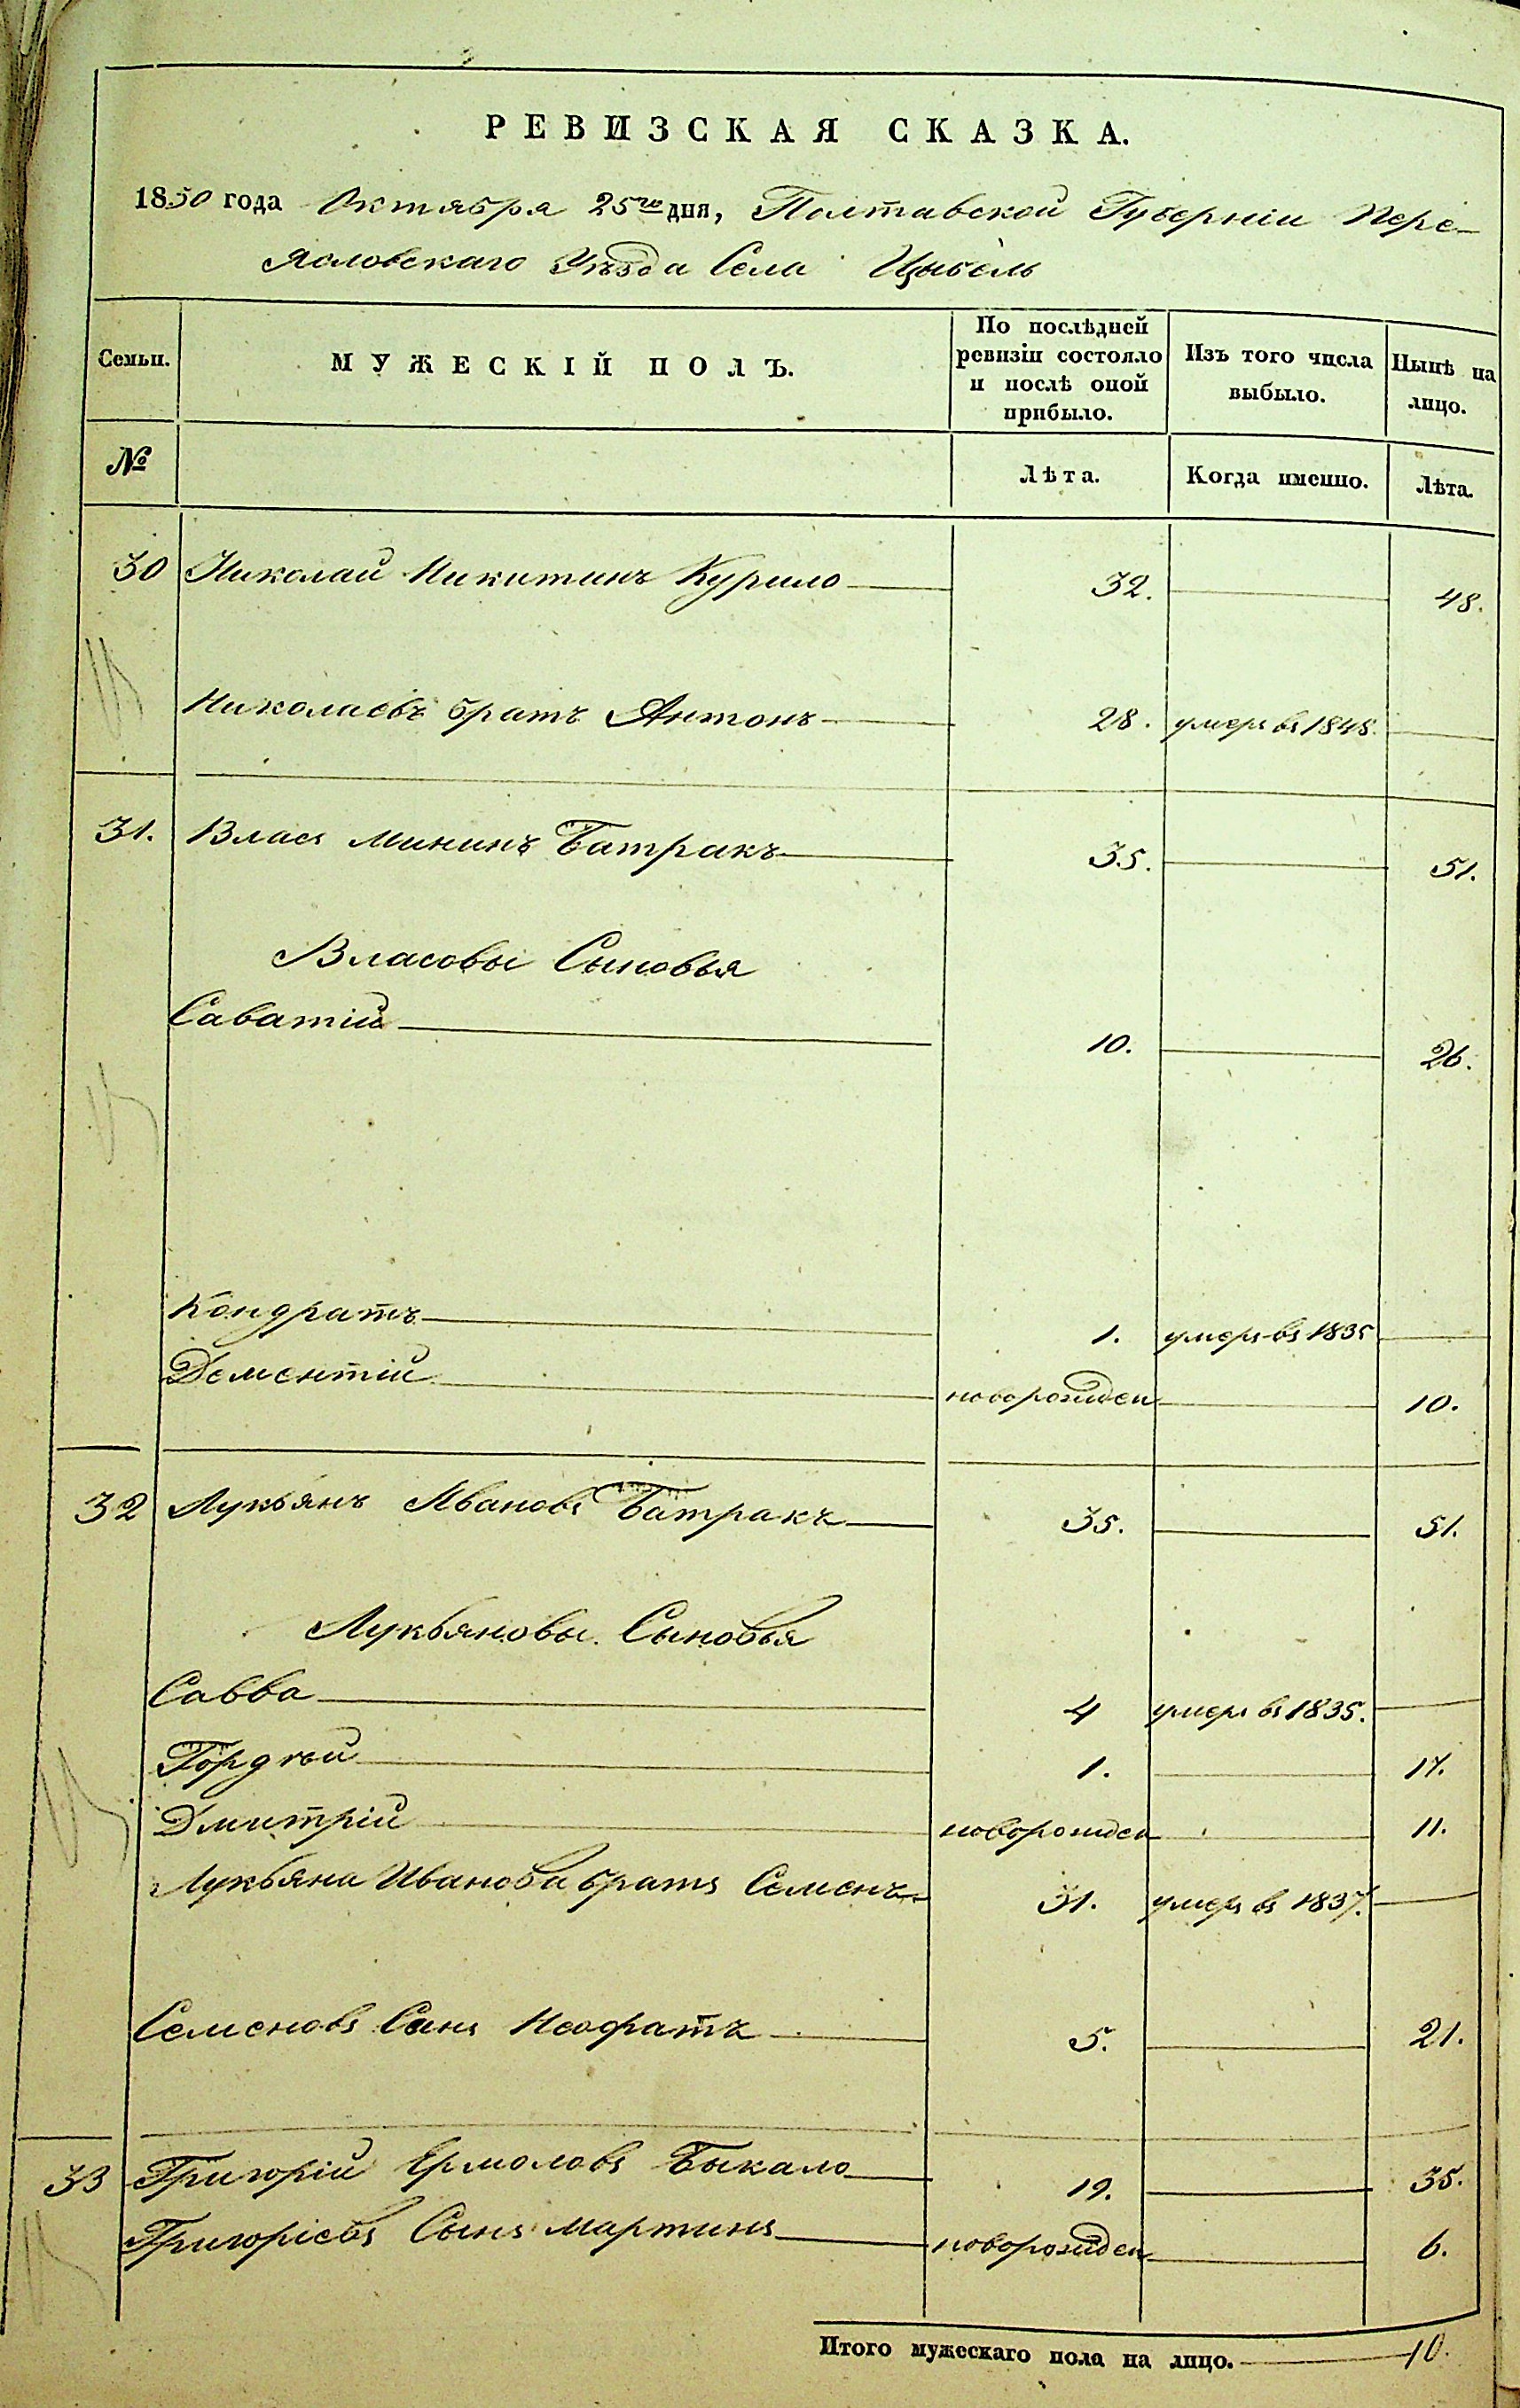 РЕВИЗСКАЯ СКАЗКА.
1850 года Октября 25го дня, Полтавской Губерніи Пере-
ясловскаго Уѣзда Села Цыбель
Семьи. МУЖЕСКІЙ ПОЛЪ. По послѣдней ревизіи состояло и послѣ оной прибыло. Изъ того числа выбыло. Нынѣ на лицо.
№ Лѣта. Когда именно. Лѣта.
30 Николай Никитинъ Курило 32. 48.
Николаевъ братъ Антонъ 28. умеръ въ 1848.
31. Власъ Мининъ Батракъ 35. 51.
Власовы Сыновья
Саватій 10. 26.
Кондратъ 1. умеръ въ 1835
Дементій новорожден 10.
32 Лукьянъ Ивановъ Батракъ 35. 51.
Лукьяновы Сыновья
Савва 4 умеръ въ 1835.
Гордѣй 1. 17.
Дмитрій новорожден 11.
Лукьяна Иванова братъ Семенъ 31. умеръ въ 1837.
Семеновъ Сынъ Неофатъ 5. 21.
33 Григорій Ермоловъ Быкало 19. 35.
Григоріевъ Сынъ Мартинъ новорожден 6.
Итого мужескаго пола на лицо. 10.